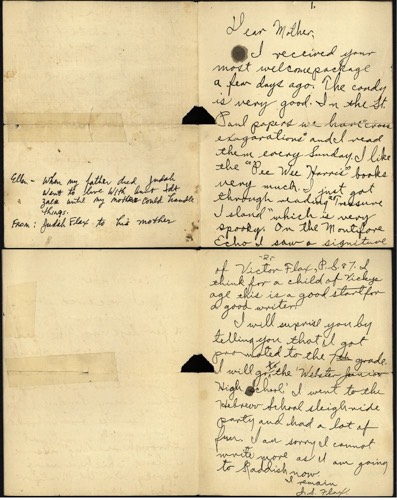 1.
Dear Mother,
I received your
most welcome package
a few days ago. The candy
is very good. In the St.
Paul papers we have "cross
exagarations" and I read
them every Sunday. I like
the "Pee Wee Harris" books
very much. I just got
through reading "Treasure
Island" which is very
spooky. On the Montefiore
Echo I saw a signiture
Ellen - When my father died, Judah
went to live with Aunt Ida
until my mother could handle
things.
From: Judah Flax to his mother
-2-
of Victor Flax, P.S. 87. I
think for a child of Vicky's
age this is a good start for
a good writer.
I will suprise you by
telling you that I got
promoted to the 7th grade.
I will go to the Webster Junior
High School. I went to the
Hebrew School sleigh ride
party and had a lot of
fun. I am sorry I cannot
write more as I am going
to Kaddish now.
I remain
J.S. Flax.